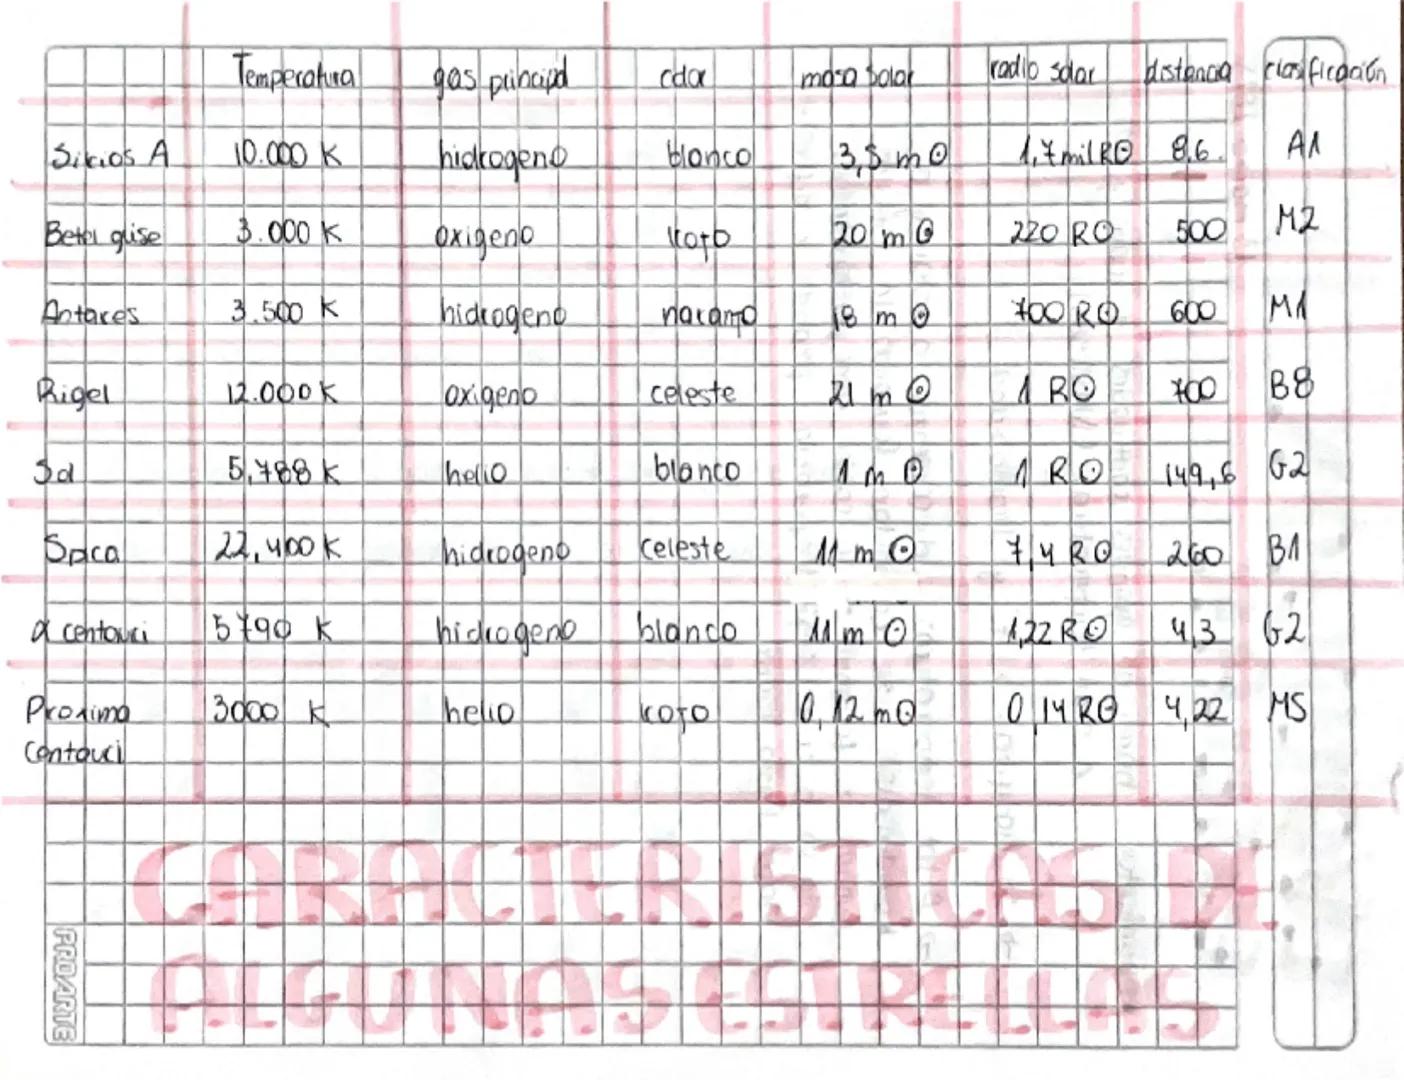 Temperatura gas principal color masa solar radio solar distancia clasificación
Sirios A 10.000 K hidrogeno blanco 3,5 m⊙ 1,7 mil R⊙ 8,6. A1
Betel guise 3.000 K oxigeno rojo 20 m⊙ 220 R⊙ 500 M2
Antares 3.500 K hidrogeno naranjo 18 m⊙ 700 R⊙ 600 M1
Rigel 12.000 K oxigeno celeste 21 m⊙ 1 R⊙ 700 B8
Sol 5,788 K helio blanco 1 m⊙ 1 R⊙ 149,6 G2
Spica 22,400 K hidrogeno celeste 11 m⊙ 7,4 R⊙ 260 B1
α centauri 5790 K hidrogeno blanco 11 m⊙ 1,22 R⊙ 4,3 G2
Proxima 3000 K helio rojo 0,12 m⊙ 0,14 R⊙ 4,22 M5
Centauri
CARACTERISTICAS DE
ALGUNAS ESTRELLAS
PROARTE